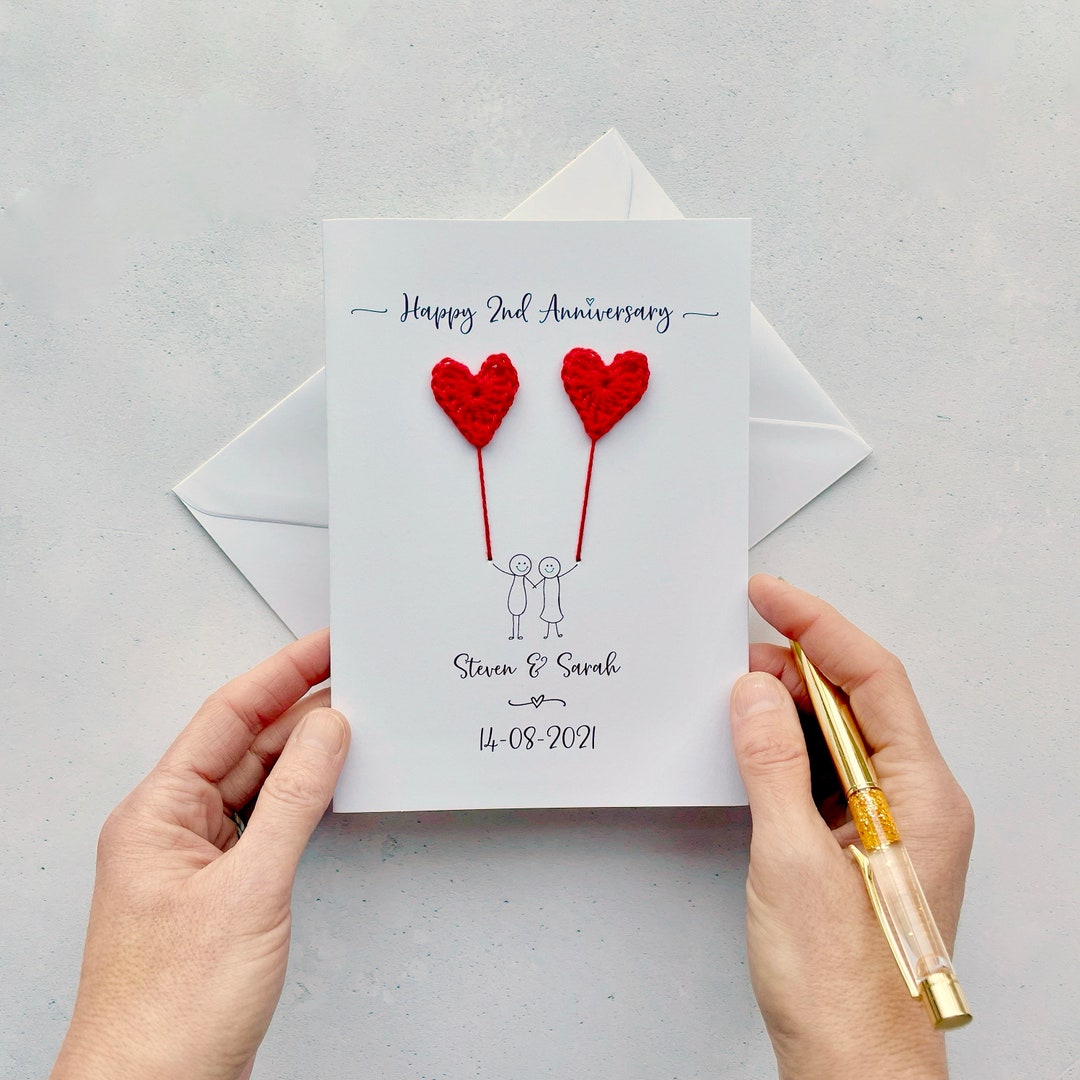 Happy 2nd Anniversary
Steven & Sarah
14-08-2021